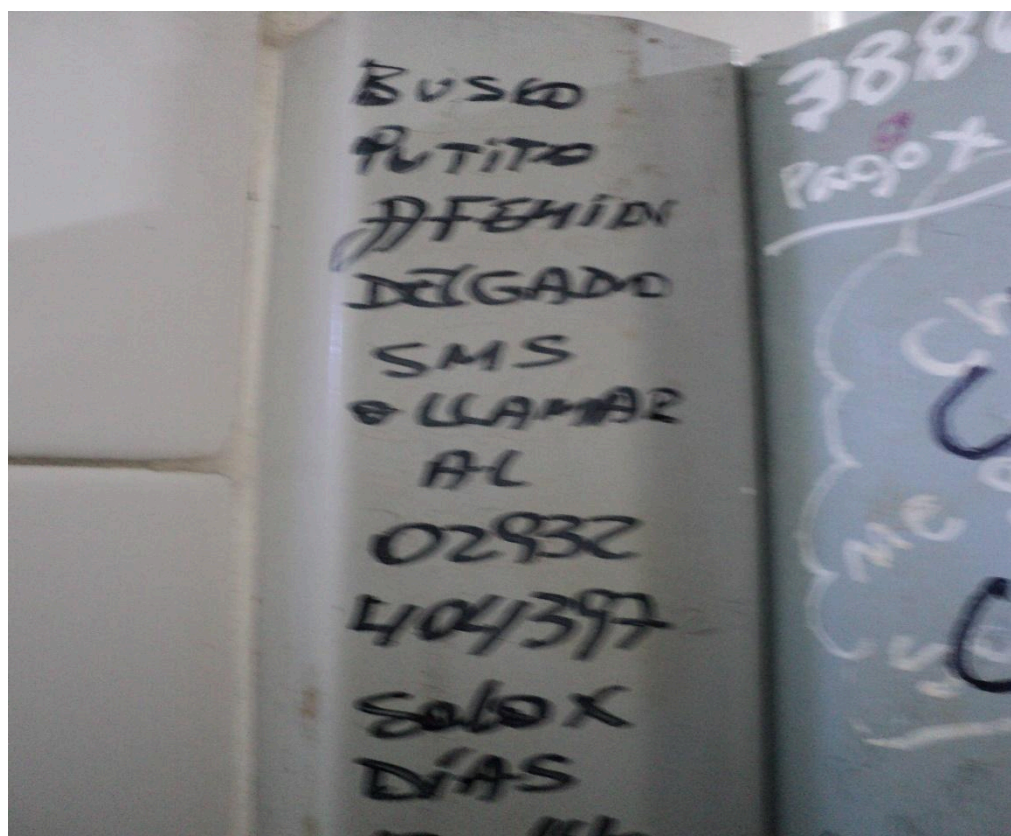 BUSCO
PUTITO
AFEMIN
DELGADO
SMS
O LLAMAR
AL
02932
404397
Solo X
DÍAS
388
Pago X
me